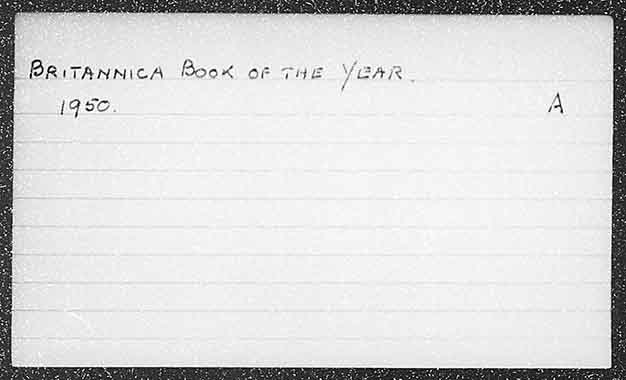 BRITANNICA BOOK OF THE YEAR.
1950. A